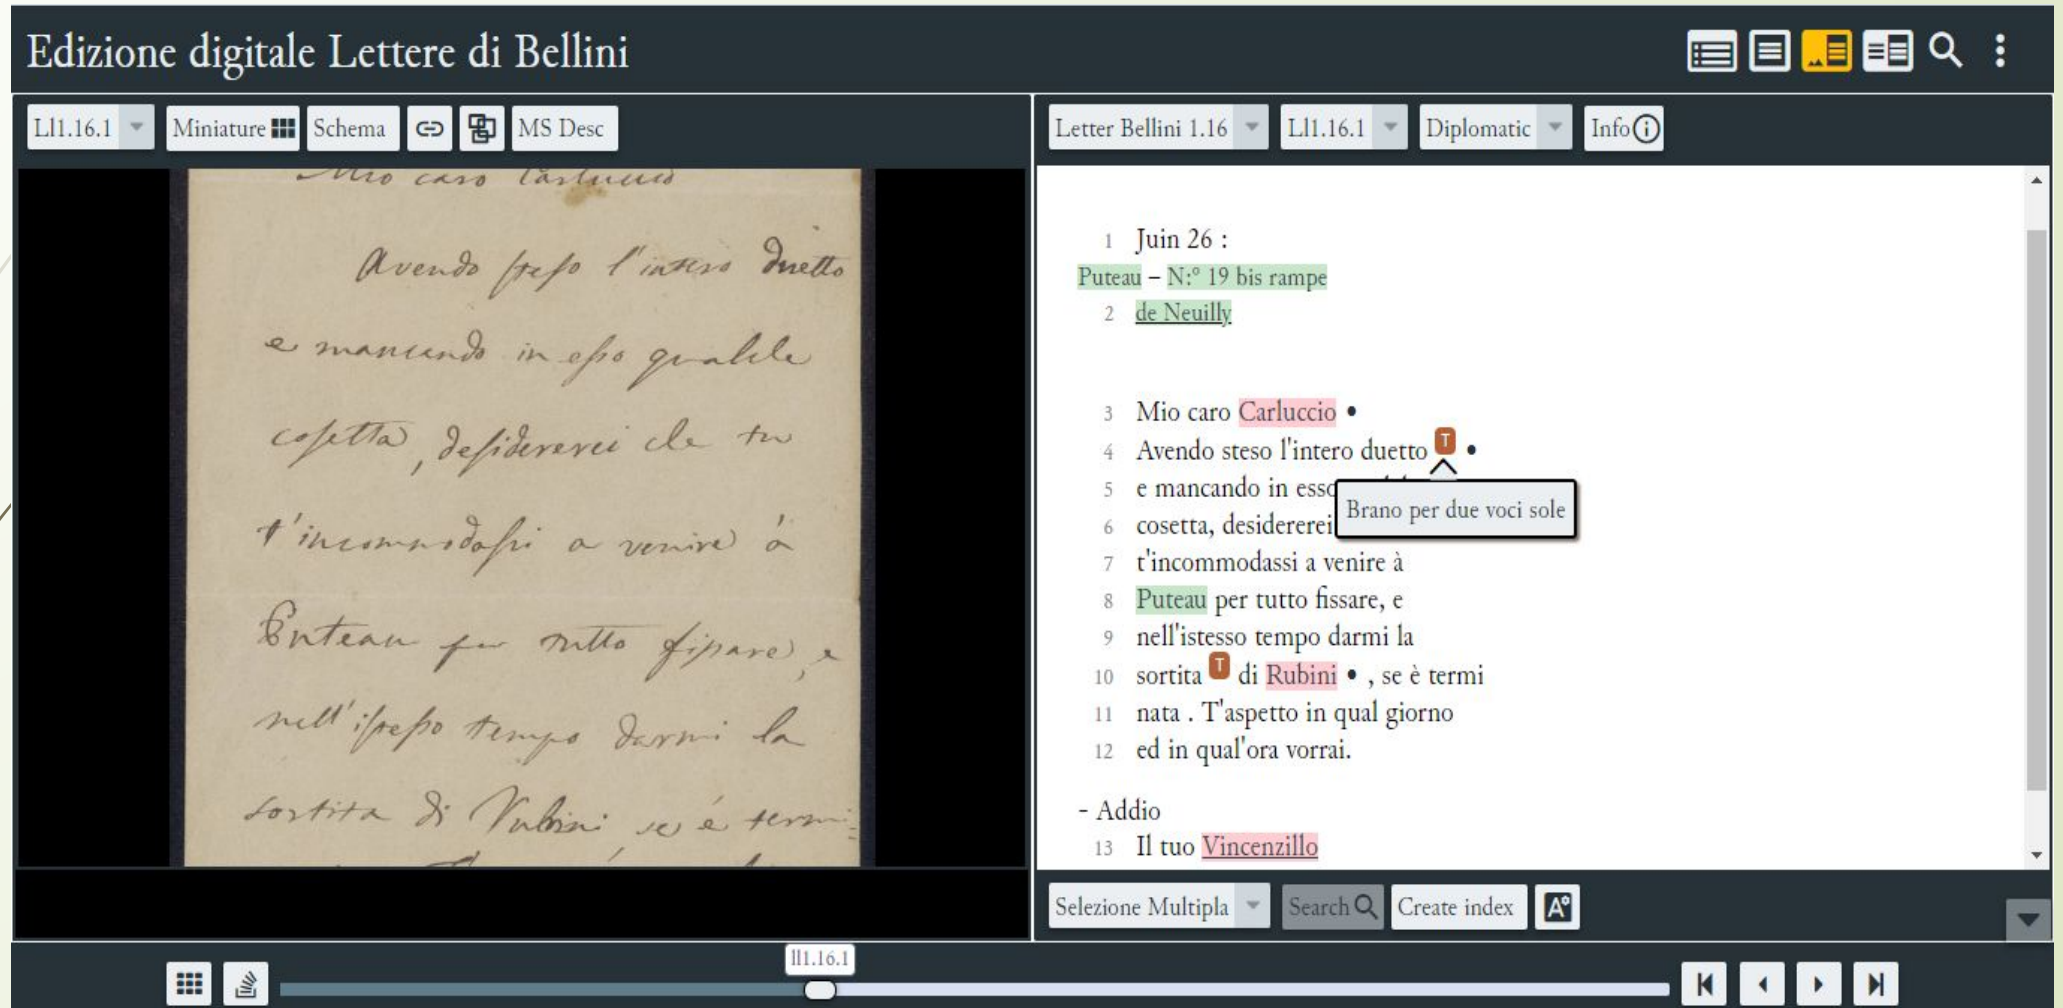 Edizione digitale Lettere di Bellini
Ll1.16.1
Miniature
Schema
MS Desc
Mio caro Carluccio
Avendo steso l'intero duetto
e mancando in esso qualche
cosetta, desidererei che tu
t'incommodassi a venire à
Puteau per tutto fissare, e
nell'istesso tempo darmi la
sortita di Rubini se é termi=
Letter Bellini 1.16
Ll1.16.1
Diplomatic
Info
1 Juin 26 :
Puteau – N:º 19 bis rampe
2 de Neuilly
3 Mio caro Carluccio •
4 Avendo steso l'intero duetto T •
5 e mancando in esso
Brano per due voci sole
6 cosetta, desidererei
7 t'incommodassi a venire à
8 Puteau per tutto fissare, e
9 nell'istesso tempo darmi la
10 sortita T di Rubini • , se è termi
11 nata . T'aspetto in qual giorno
12 ed in qual'ora vorrai.
- Addio
13 Il tuo Vincenzillo
Selezione Multipla
Search
Create index
A
ll1.16.1